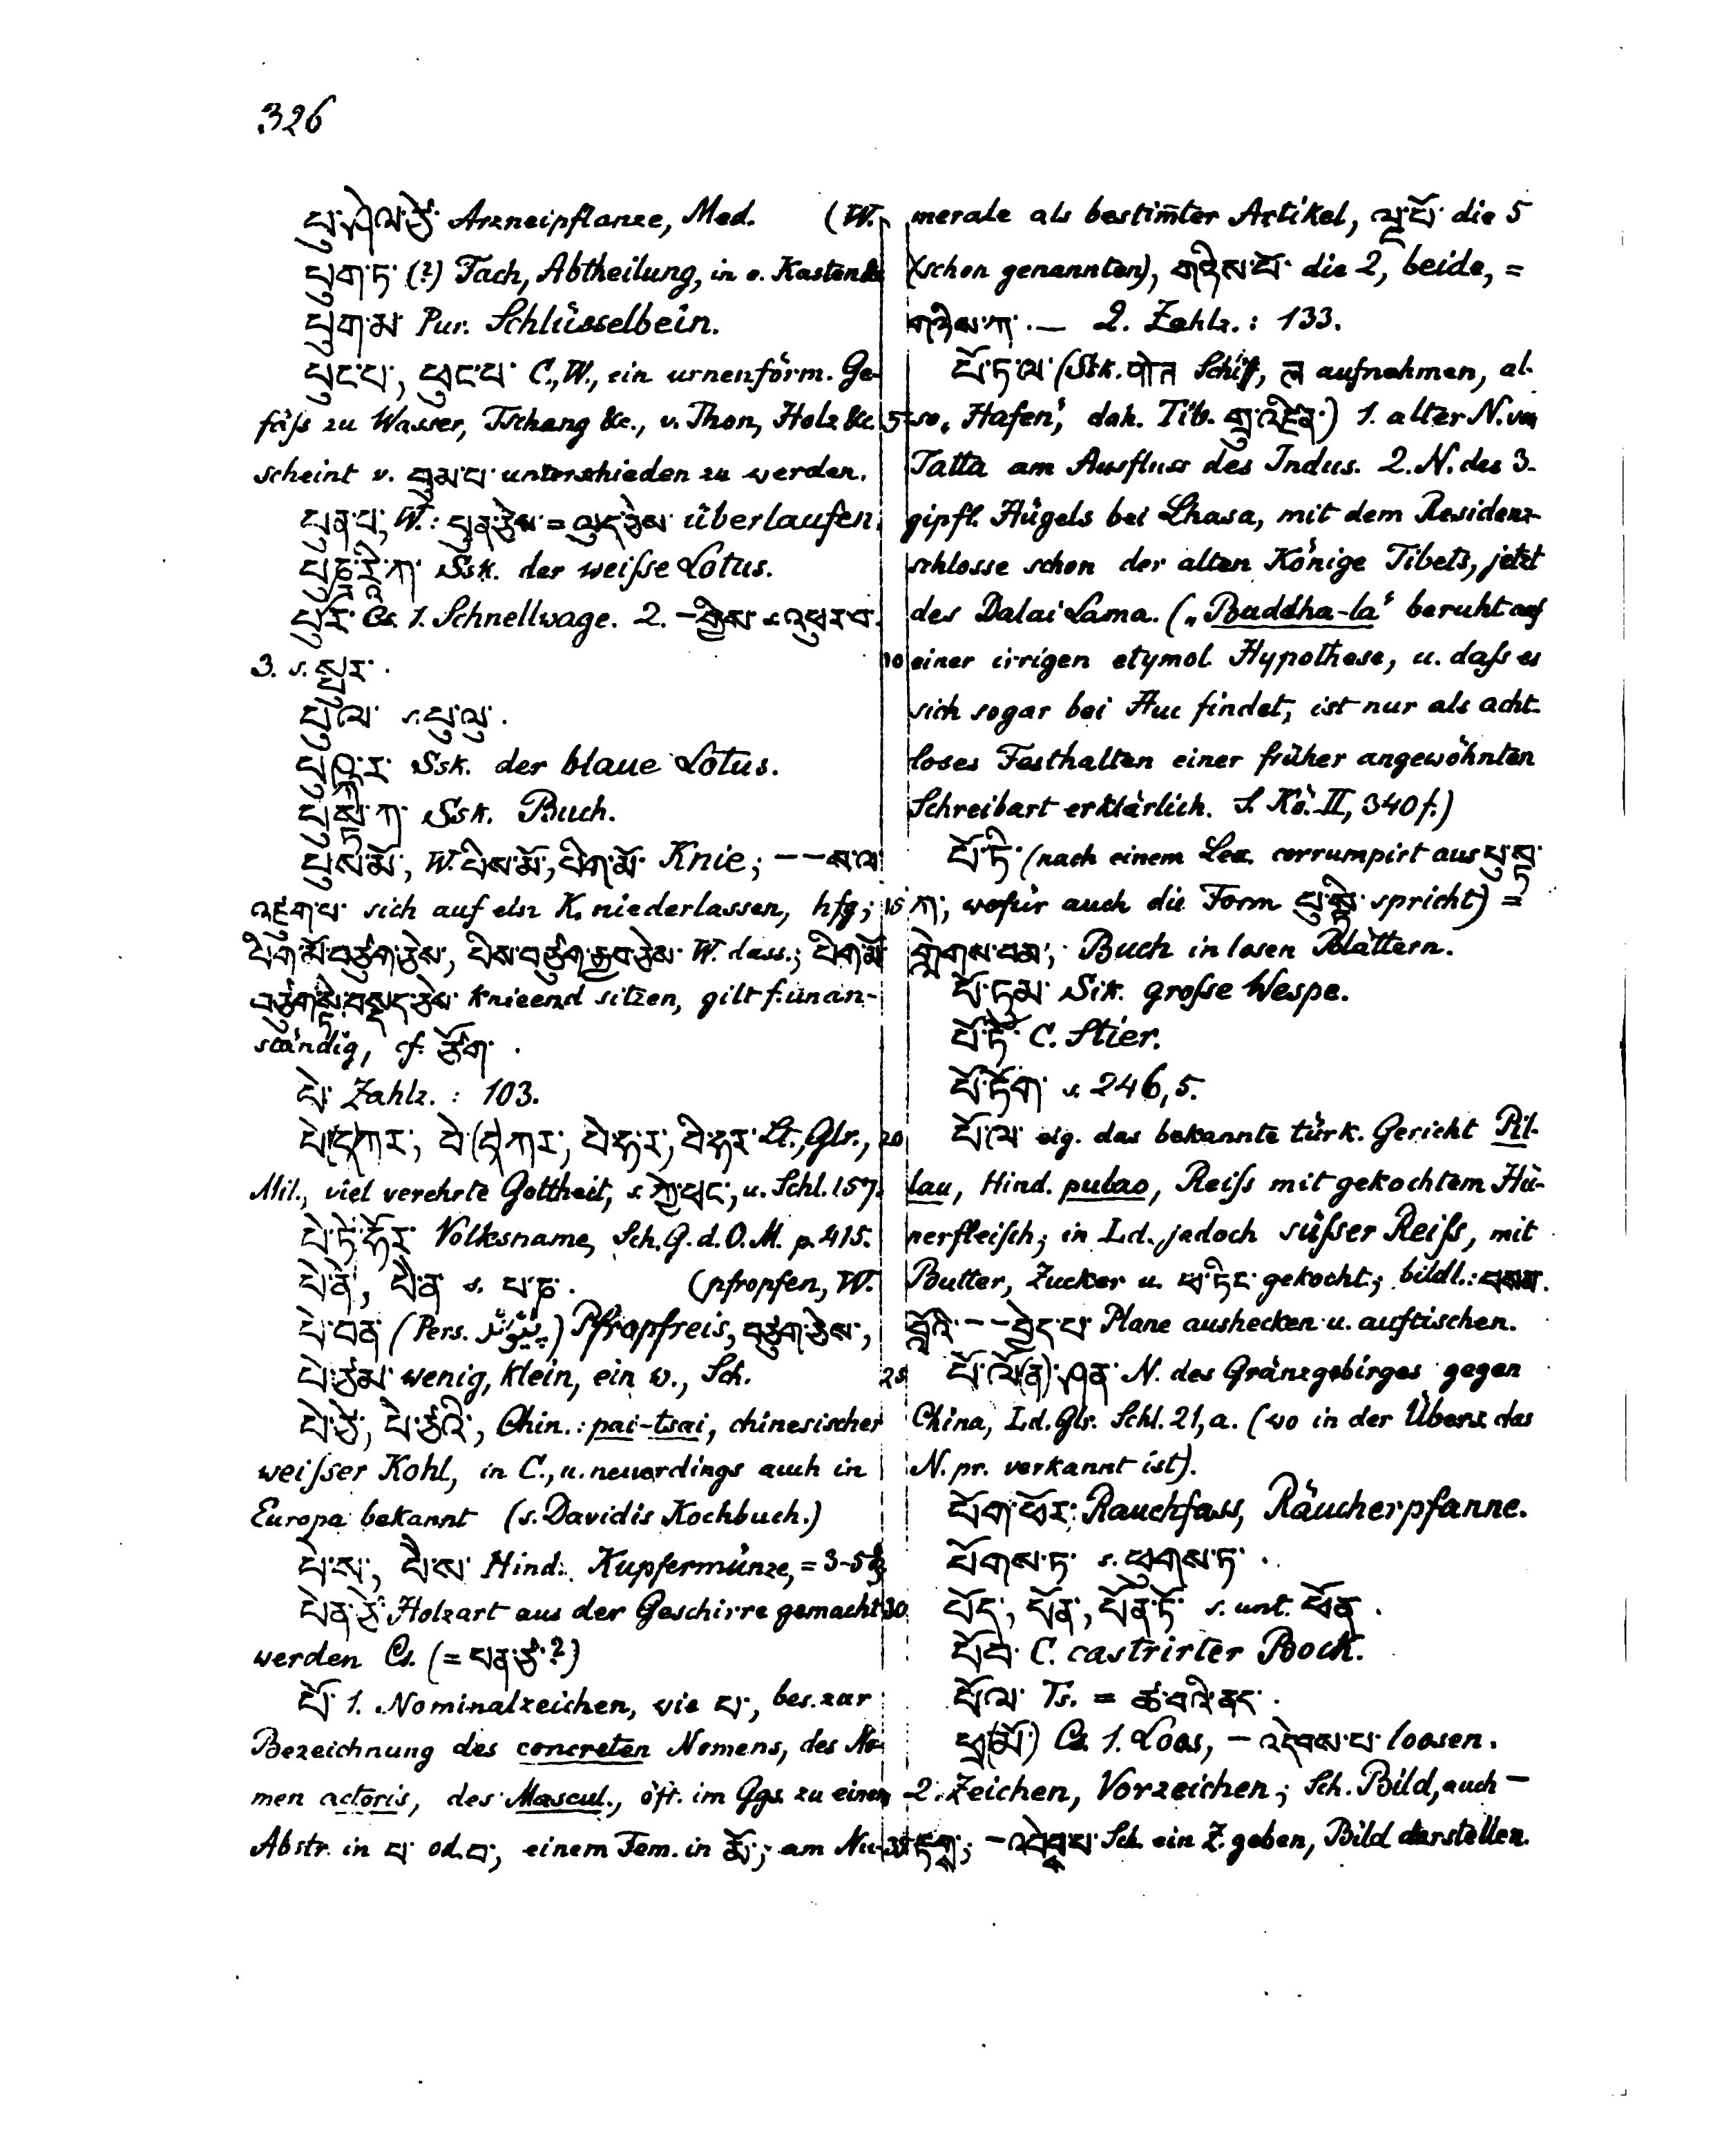 326
པུ་ཤེལ་རྩེ་ Arzneipflanze, Med. (W.
པུག་ཏ་ (?) Fach, Abtheilung, in e. Kasten &c
པུག་མ་ Pur. Schlüsselbein.
པུང་པ་, ཕུང་པ་ C., W., ein urnenförm. Ge-
fäſs zu Wasser, Tschang &c., v. Thon, Holz &c.
scheint v. བུམ་པ་ unterschieden zu werden.
པུན་པ་, W.: པུན་ཅེས་ = ལུད་ཅེས་ überlaufen.
པུཎྜ་རཱི་ཀ་ Ssk. der weiſse Lotus.
པུར་ Cs. 1. Schnellwage. 2. – གྱིས་ s. འཕུར་བ་.
3. s. སྤུར་.
པུལ་ s. པུ་ལུ་.
Ssk. der blaue Lotus.
པུསྟི་ཀ་ Ssk. Buch.
པུས་མོ་, W. པིས་མོ་, པིག་མོ་ Knie; – – ས་ལ་
འཛུག་པ་ sich auf ein K. niederlassen, hfg;
པིག་མོ་བཙུག་ཅེས་, པིས་བཙུག་རྒྱབ་ཅེས་ W. dass.; པིག་མོ་
བཙུགས་ཏེ་བསྡད་ཅེས་ knieend sitzen, gilt f. unan-
ständig, cf. ཙོག་.
པེ་ Zahlz.: 103.
པེ་(ད)ཀར་, བེ་(ད)ཀར་, པེ་ཧར་, བི་ཧར་ Lt., Glr.,
Mil., viel verehrte Gottheit, s. u. Schl. 157.
པེ་ཏེ་ཧོར་ Volksname, Sch. G. d. O. M. p. 415.
པེ་ནེ་, པེན་ s. པ་ཎ་. (pfropfen, W.
པེ་བན་ (Pers. پیوند) Pfropfreis, བཙུག་ཅེས་,
པེ་ཙམ་ wenig, klein, ein w., Sch.
པེ་ཙེ་, པེ་ཙའི་, Chin.: pai-tsai, chinesischer
weiſser Kohl, in C., u. neuerdings auch in
Europa bekannt (s. Davidis Kochbuch.)
པེ་ས་, པཻ་ས་ Hind:. Kupfermünze, = 3-5 ₰
པེན་ཙེ་ Holzart aus der Geschirre gemacht
werden Cs. (= པན་ཙ་?)
པོ་ 1. Nominalzeichen, wie པ་, bes. zur
Bezeichnung des concreten Nomens, des No-
men actoris, des Mascul., öft. im Ggs. zu einem
Abstr. in པ་ od. བ་, einem Fem. in མོ་; am Nu-
merale als bestim̄ter Artikel, ལྔ་པོ་ die 5
(schon genannten), གཉིས་པོ་ die 2, beide, =
གཉིས་ཀ་. — 2. Zahlz.: 133.
པོ་ཏ་ལ་ (Ssk. पोत Schiff, ल aufnehmen, al-
5 so „Hafen“, dah. Tib. གྲུ་འཛིན་) 1. alter N. von
Tatta am Ausfluss des Indus. 2. N. des 3-
gipfl. Hügels bei Lhasa, mit dem Residenz-
schlosse schon der alten Könige Tibets, jetzt
des Dalai Lama. („Buddha-la“ beruht auf
10 einer irrigen etymol. Hypothese, u. daſs es
sich sogar bei Huc findet, ist nur als acht-
loses Festhalten einer früher angewöhnten
Schreibart erklärlich. S. Kö. II, 340 f.)
པོ་ཏི་ (nach einem Lex. corrumpirt aus པུ་སྟ་
15 ཀ་, wofür auch die Form པུ་སྟི་ spricht) =
གླེགས་བམ་, Buch in losen Blättern.
པོ་ཏམ་ Sik. groſse Wespe.
པོ་ཏོ་ C. Stier.
པོ་ཏོག་ s. 246,5.
20 པོ་ལ་ eig. das bekannte türk. Gericht Pil-
lau, Hind. pulao, Reiſs mit gekochtem Hü-
nerfleiſch; in Ld. jedoch süſser Reiſs, mit
Butter, Zucker u. ཕ་ཏིང་ gekocht; bildl.: བསམ་
བློའི་ – – བྱེད་པ་ Plane aushecken u. auftischen.
25 པོ་ལོ་(ན)་ཤན་ N. des Gränzgebirges gegen
China, Ld. Glr. Schl. 21, a. (wo in der Übers. das
N. pr. verkannt ist).
པོག་ཕོར་ Rauchfass, Räucherpfanne.
པོགས་ཏ་ s. ཕུགས་ཏ་.
30 པོད་, པོན་, པོན་ཏོ་ s. unt. ཕོན་.
པོབ་ C. castrirter Bock.
པོལ་ Ts. = ཚ་བའི་ནད་.
ཕྲ་(མོ་) Cs. 1. Loos, – འདེབས་པ་ loosen.
2. Zeichen, Vorzeichen; Sch. Bild, auch –
35 རྟགས་; – འབེབས་པ་ Sch. ein Z. geben, Bild darstellen.